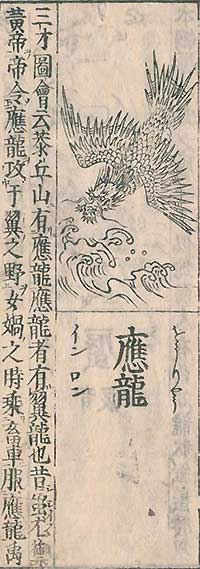 をうりやう
應龍
イン ロン
三才圖會云恭丘山有應龍應龍者有翼龍也昔蚩尤禦
黃帝帝令應龍攻于翼之野女媧之時乘畜車服應龍禹